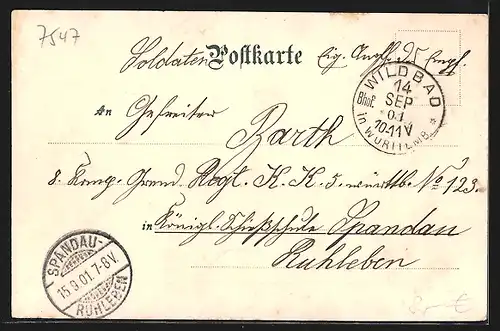 7547
Soldaten Postkarte Eig. Angel. d. Empf.
WILDBAD
14
Bhof. SEP
01
10-11V
in WÜRTTEMB.
An Gefreiter Barth
8. Komp. Grend. Regt. K. K. 5. württb. No 123.
in Königl. Schießschule Spandau
Ruhleben
SPANDAU-
15.9.01.7-8V.
RUHLEBEN